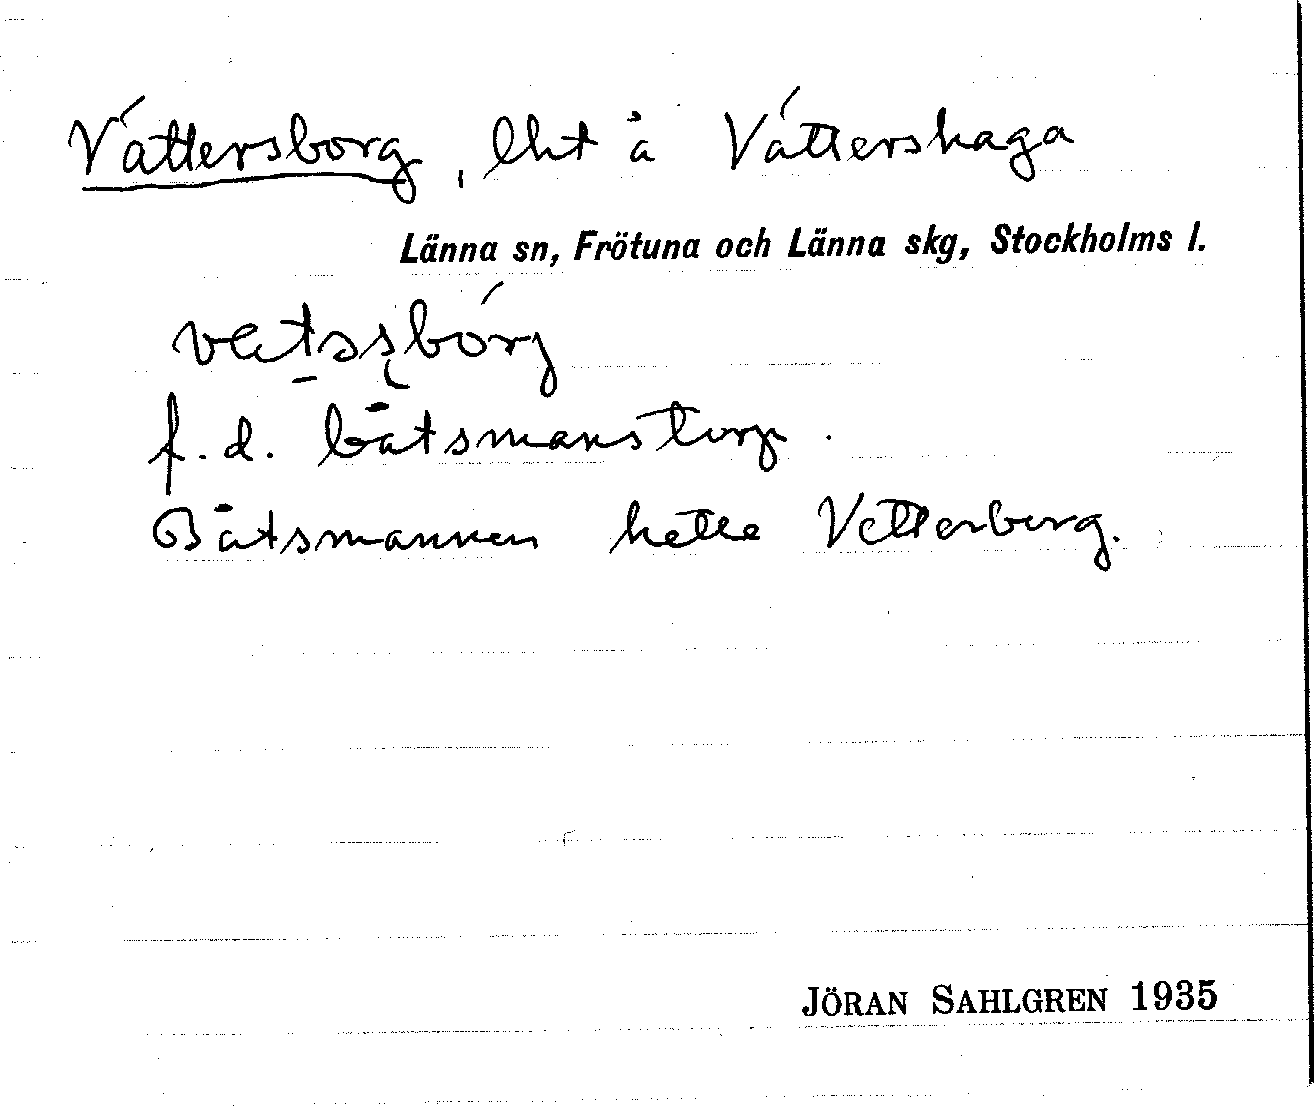 Vättersborg, lht å Vättershaga
Länna sn, Frötuna och Länna skg, Stockholms l.
f.d. båtsmanstorp.
Båtsmannen hette Vetterberg.
JÖRAN SAHLGREN 1935